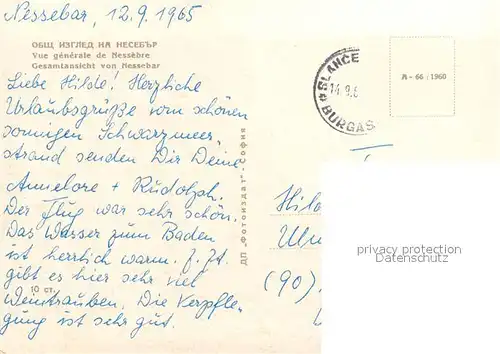 Nessebar, 12.9.1965
ОБЩ ИЗГЛЕД НА НЕСЕБЪР
Vue générale de Nessèbre
Gesamtansicht von Nessebar
Liebe Hilde! Herzliche
Urlaubsgrüße vom schönen
sonnigen Schwarzmeer-
strand senden Dir Deine
Annelore + Rudolph.
Der Flug war sehr schön.
Das Wasser zum Baden
ist herrlich warm. Z. Zt.
gibt es hier sehr viel
Weintrauben. Die Verpfle-
gung ist sehr gut.
10 ст.
ДП „Фотоиздат"- София
SLANCE
14.9.6
BURGAS
А - 66 / 1960
Hil
Ulm
(90)
privacy protection
Datenschutz